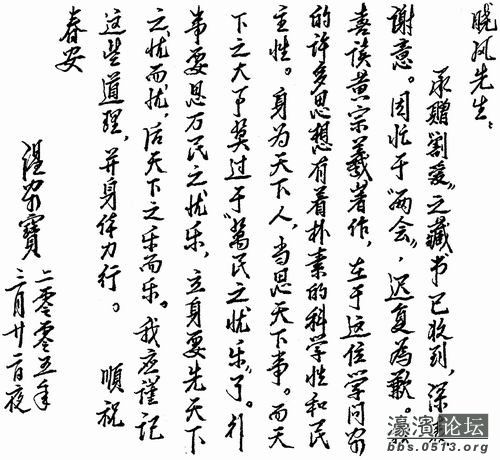 晓风先生：
承赠“割爱”之藏书已收到，深表
谢意。因忙于“两会”，迟复為歉。
喜读黄宗羲著作，在于这位学问家
的许多思想有着朴素的科学性和民
主性。身为天下人，当思天下事。而天
下之大事莫过于“萬民之忧乐”了。行
事要思万民之忧乐，立身要先天下
之忧而忧，后天下之乐而乐。我应谨记
这些道理，并身体力行。 順祝
春安
温家寶
二零零五年
三月廿二日夜
濠滨论坛
bbs.0513.org